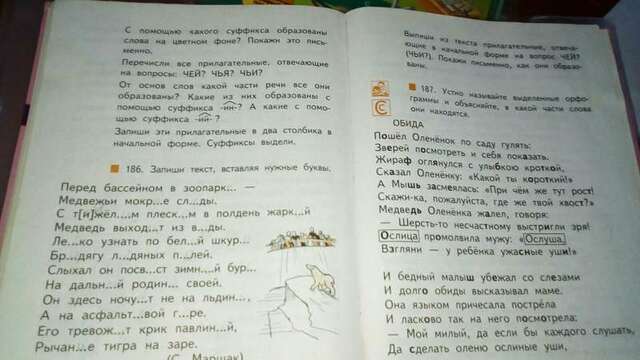 С помощью какого суффикса образованы
слова на цветном фоне? Покажи это пись-
менно.
Перечисли все прилагательные, отвечающие
на вопросы: ЧЕЙ? ЧЬЯ? ЧЬИ?
От основ слов какой части речи все они
образованы? Какие из них образованы с
помощью суффикса -ин-? А какие с помо-
щью суффикса -ий-?
Запиши эти прилагательные в два столбика в
начальной форме. Суффиксы выдели.
186. Запиши текст, вставляя нужные буквы.
Перед бассейном в зоопарк... —
Медвежьи мокр...е сл...ды.
С т[и]жёл...м плеск...м в полдень жарк...й
Медведь выход...т из в...ды.
Ле...ко узнать по бел...й шкур...
Бр...дягу л...дяных п...лей.
Слыхал он посв...ст зимн...й бур...
На дальн...й родин... своей.
Он здесь ночу...т не на льдин...,
А на асфальт...вой г...ре.
Его тревож...т крик павлин...й,
Рычан...е тигра на заре.
(С. Маршак)
Выпиши из текста прилагательные, отвеча-
ющие в начальной форме на вопрос ЧЕЙ?
(ЧЬИ?). Покажи письменно, как они образо-
ваны.
187. Устно называйте выделенные орфо-
граммы и объясняйте, в какой части слова
они находятся.
ОБИДА
Пошёл Оленёнок по саду гулять:
Зверей посмотреть и себя показать.
Жираф оглянулся с улыбкою кроткой,
Сказал Оленёнку: «Какой ты короткий!»
А Мышь засмеялась: «При чём же тут рост!
Скажи-ка, пожалуйста, где же твой хвост?»
Медведь Оленёнка жалел, говоря:
— Шерсть-то несчастному выстригли зря!
Ослица промолвила мужу: «Ослуша,
Взгляни — у ребёнка ужасные уши!»
И бедный малыш убежал со слезами
И долго обиды высказывал маме.
Она языком причесала пострела
И ласково так на него посмотрела:
— Мой милый, да если бы каждого слушать,
Да сделать оленю ослиные уши,